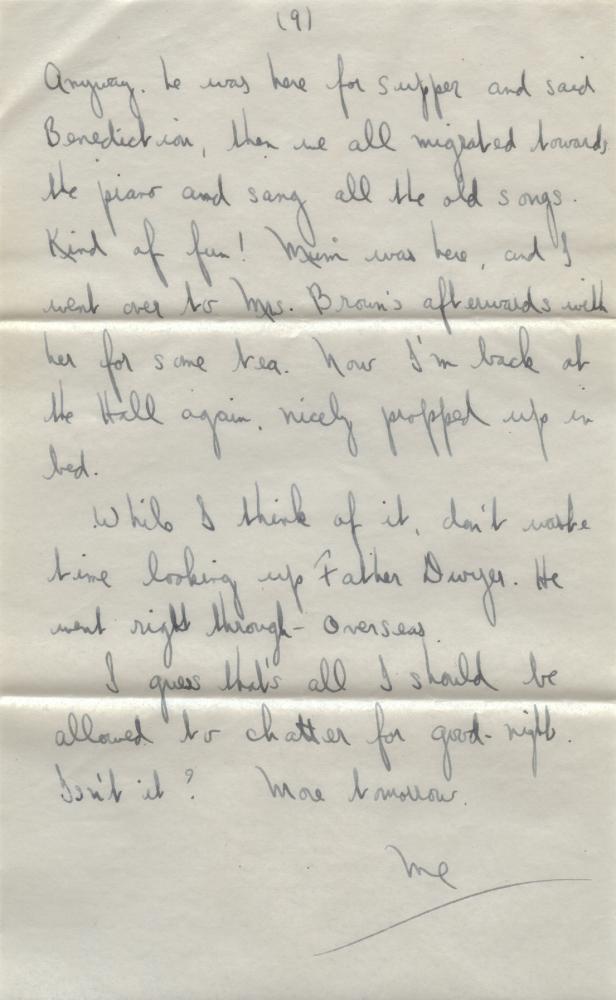 (9)
Anyway. he was here for supper and said
Benediction, then we all migrated towards
the piano and sang all the old songs.
Kind of fun! Mum was here, and I
went over to Mrs. Brown's afterwards with
her for some tea. Now I'm back at
the Hall again, nicely propped up in
bed.
While I think of it, don't waste
time looking up Father Dwyer. He
went right through - Overseas.
I guess that's all I should be
allowed to chatter for good-night.
Isn't it? More tomorrow.
Me